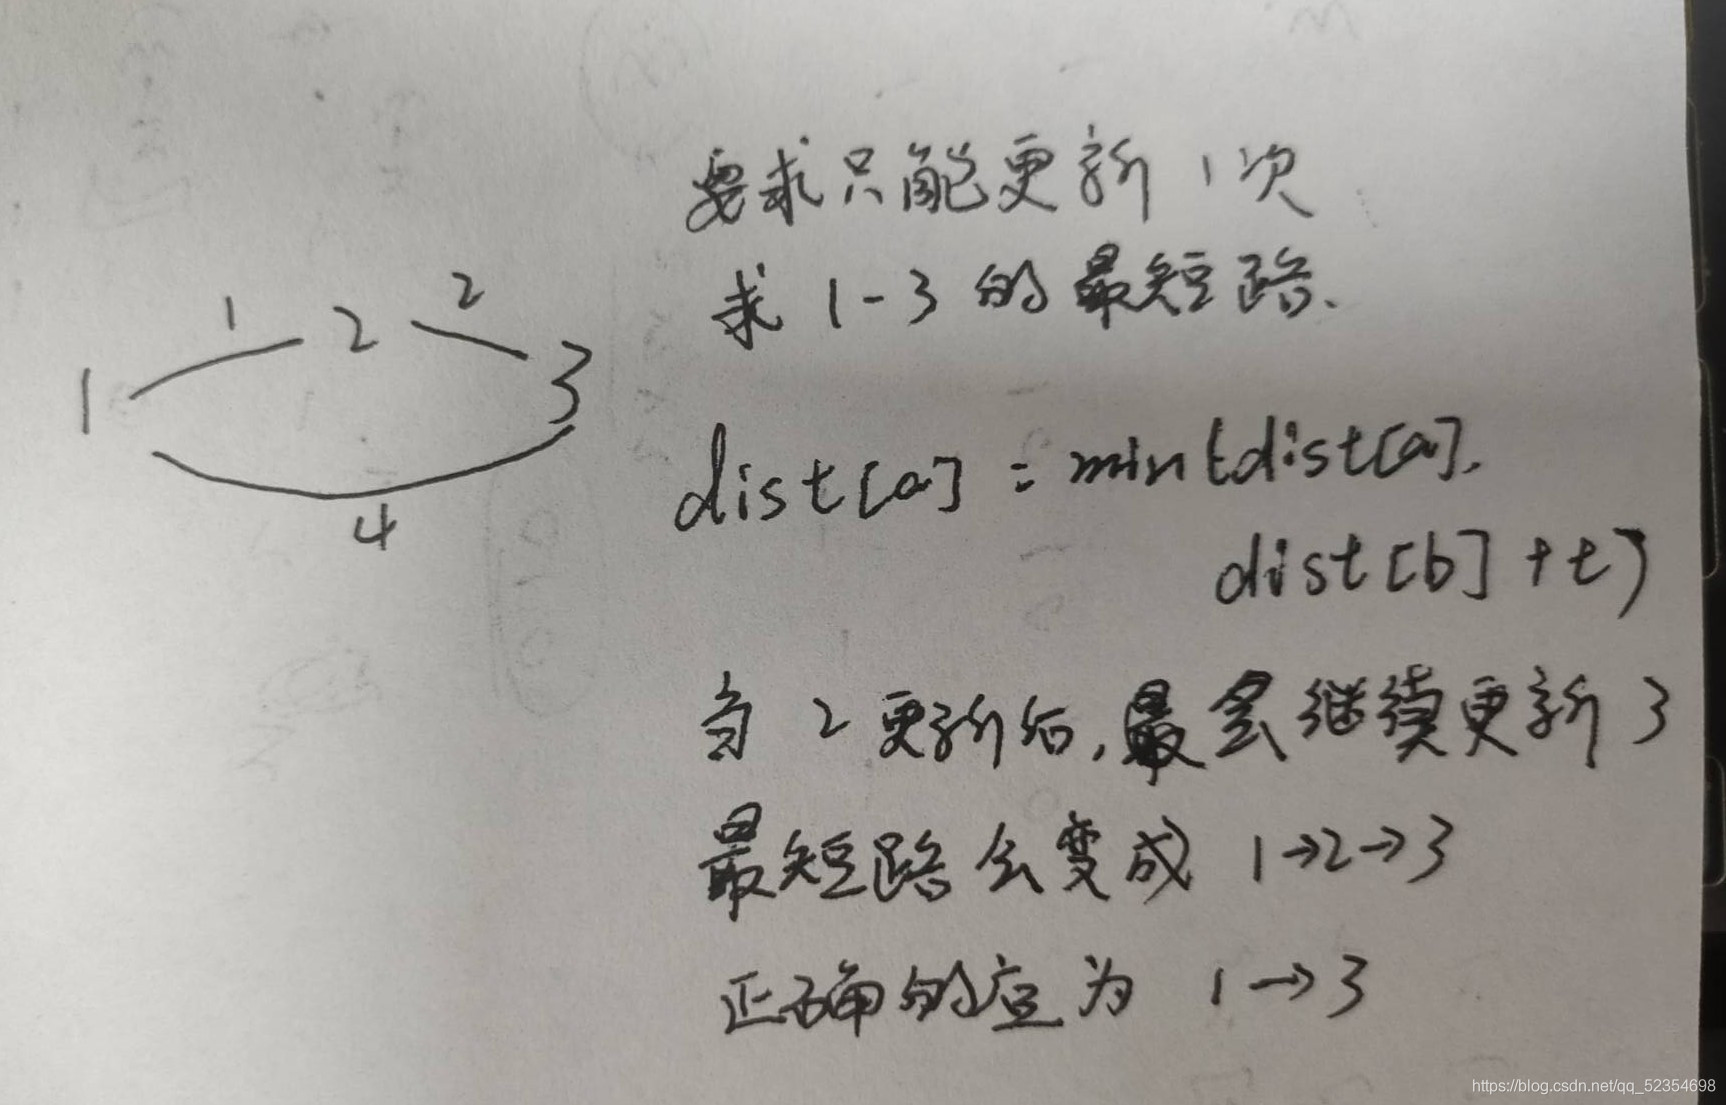 要求只能更新1次
求 1-3 的最短路、
1
2
1
2
3
4
dist[a] = min(dist[a],
dist[b]+t)
当 2 更新后,会继续更新 3
最短路会变成 1→2→3
正确的应为 1→3
https://blog.csdn.net/qq_52354698